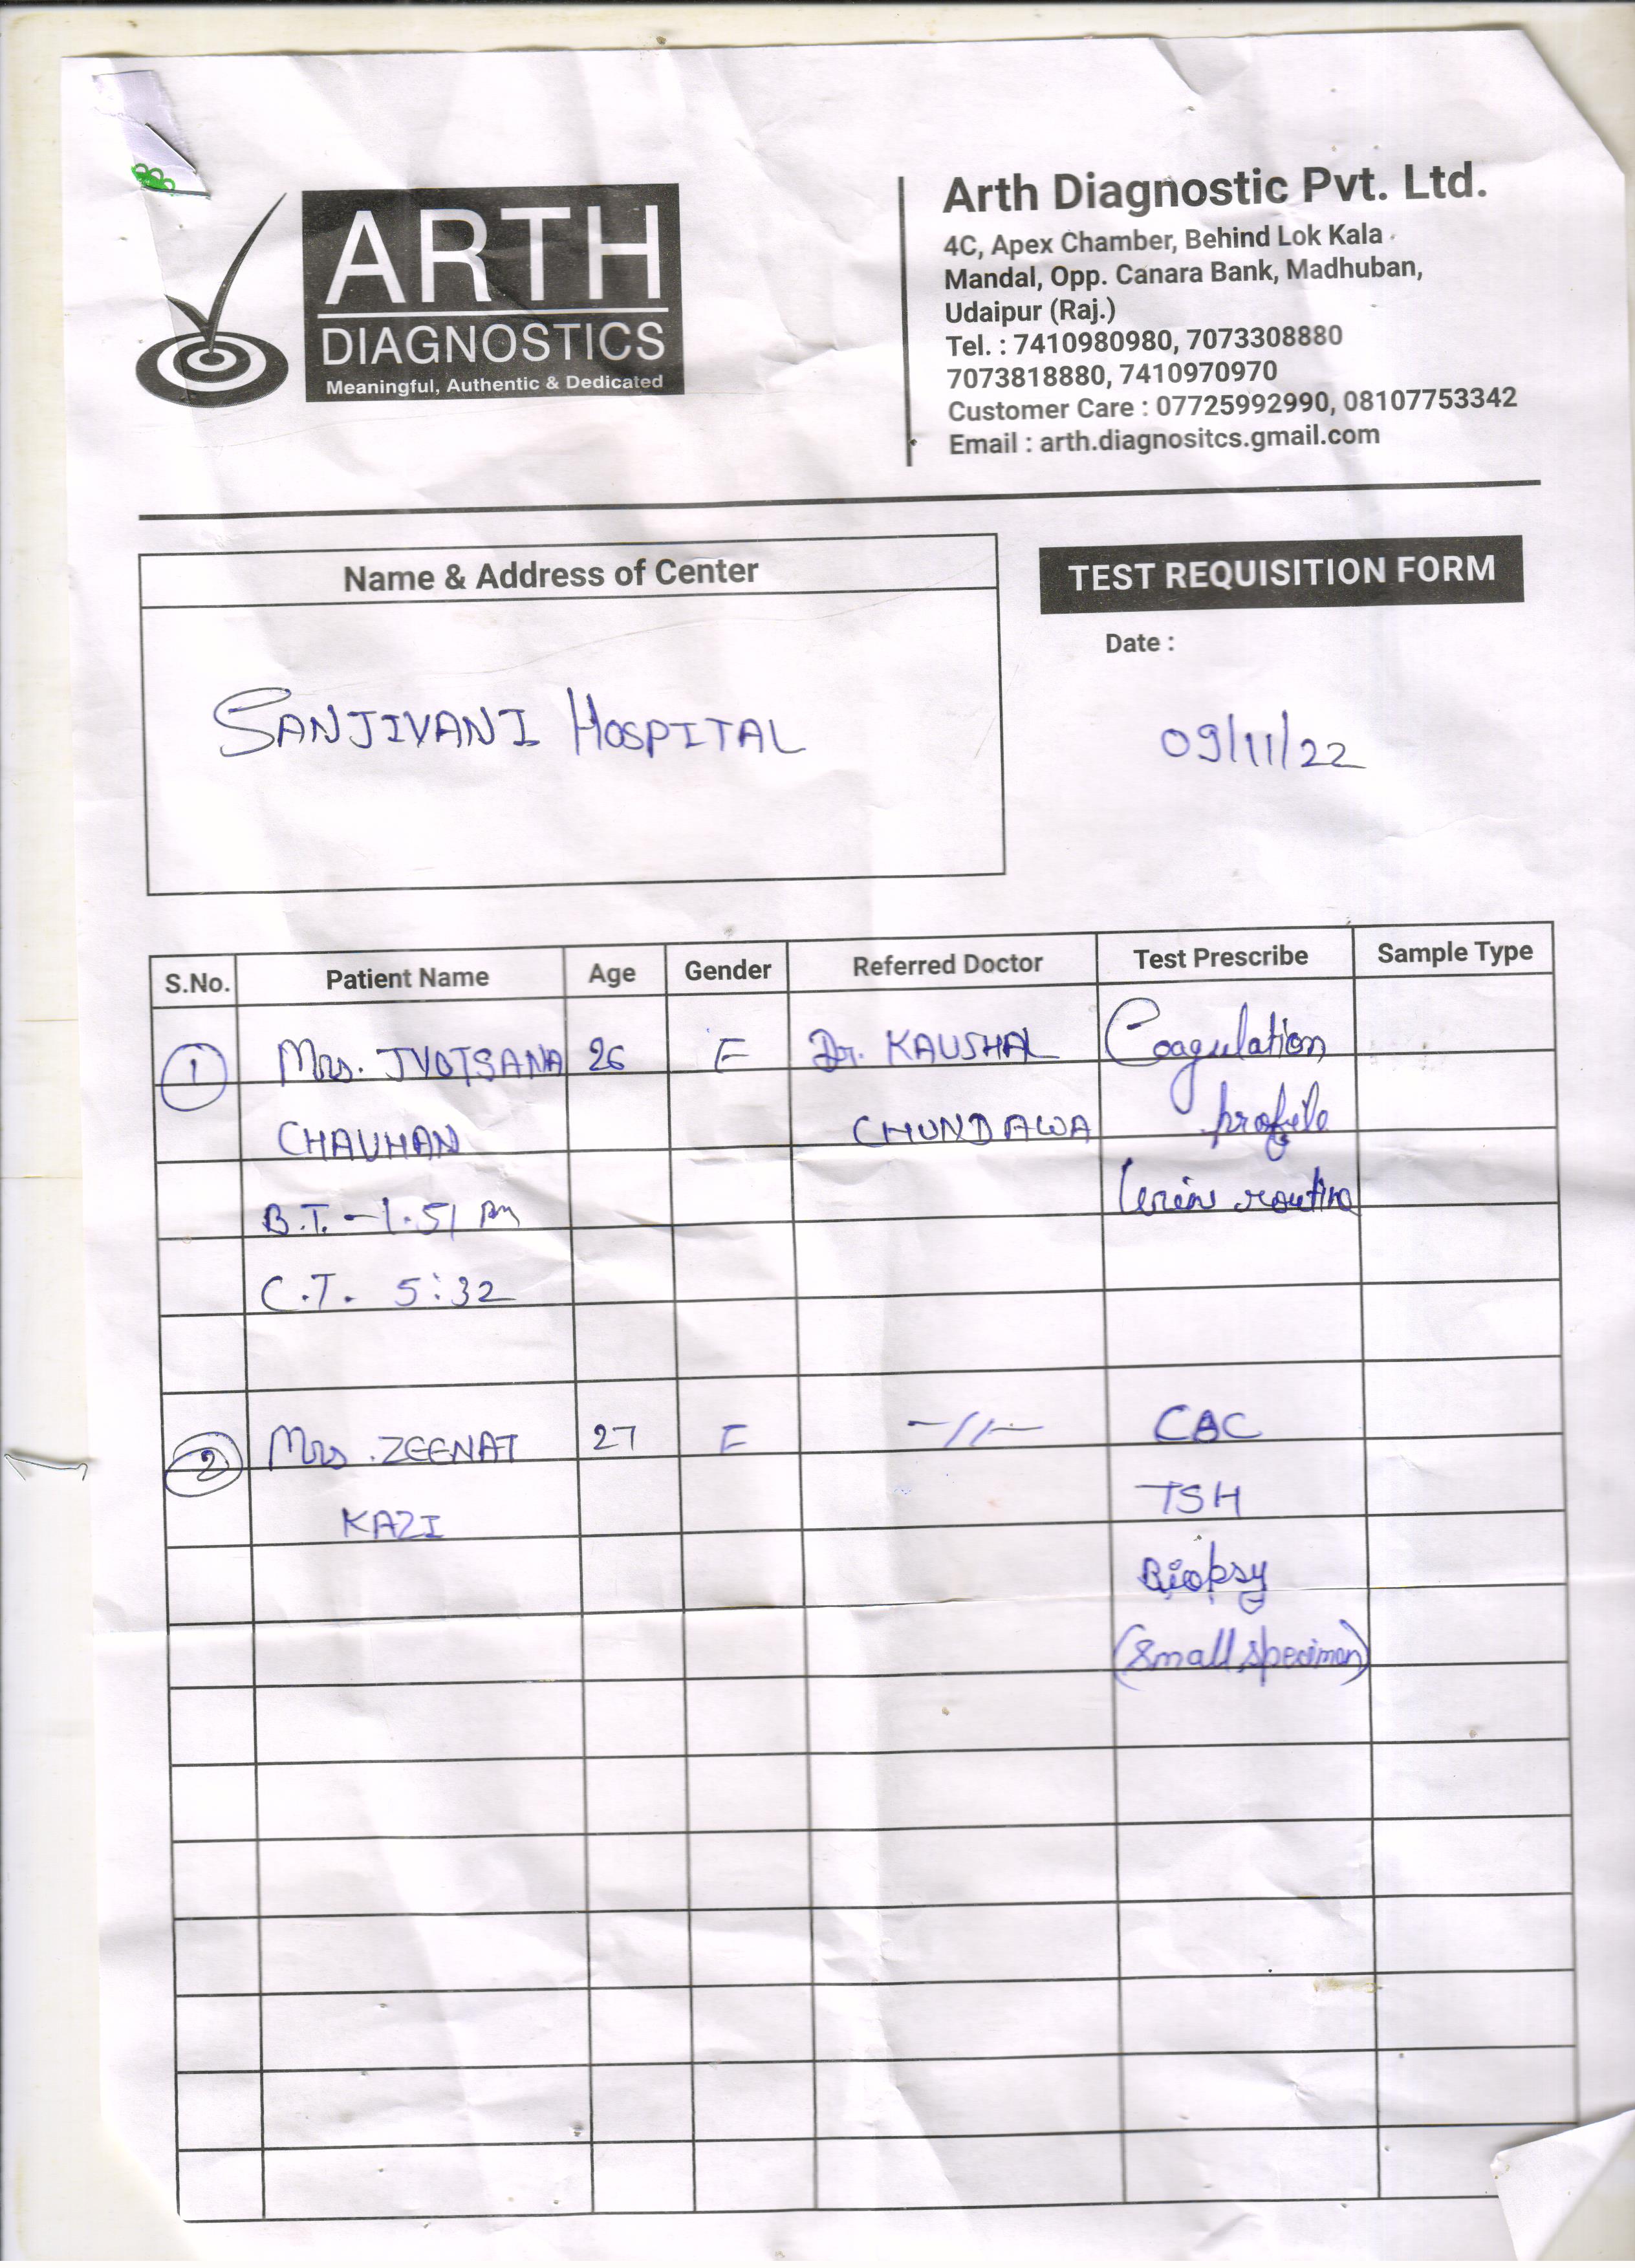 ARTH
DIAGNOSTICS
Meaningful, Authentic & Dedicated
Arth Diagnostic Pvt. Ltd.
4C, Apex Chamber, Behind Lok Kala
Mandal, Opp. Canara Bank, Madhuban,
Udaipur (Raj.)
Tel. : 7410980980, 7073308880
7073818880, 7410970970
Customer Care : 07725992990, 08107753342
Email : arth.diagnositcs.gmail.com
Name & Address of Center
TEST REQUISITION FORM
Date :
SANJIVANI HOSPITAL
09/11/22
S.No. Patient Name Age Gender Referred Doctor Test Prescribe Sample Type
1 Mrs. JYOTSANA 26 F Dr. KAUSHAL Coagulation
CHAUHAN CHUNDAWA profile
B.T. - 1.51 routine
C.T. 5:32
2 Mrs. ZEENAT 27 F -//- CBC
KAZI TSH
Biopsy
(small specimen)